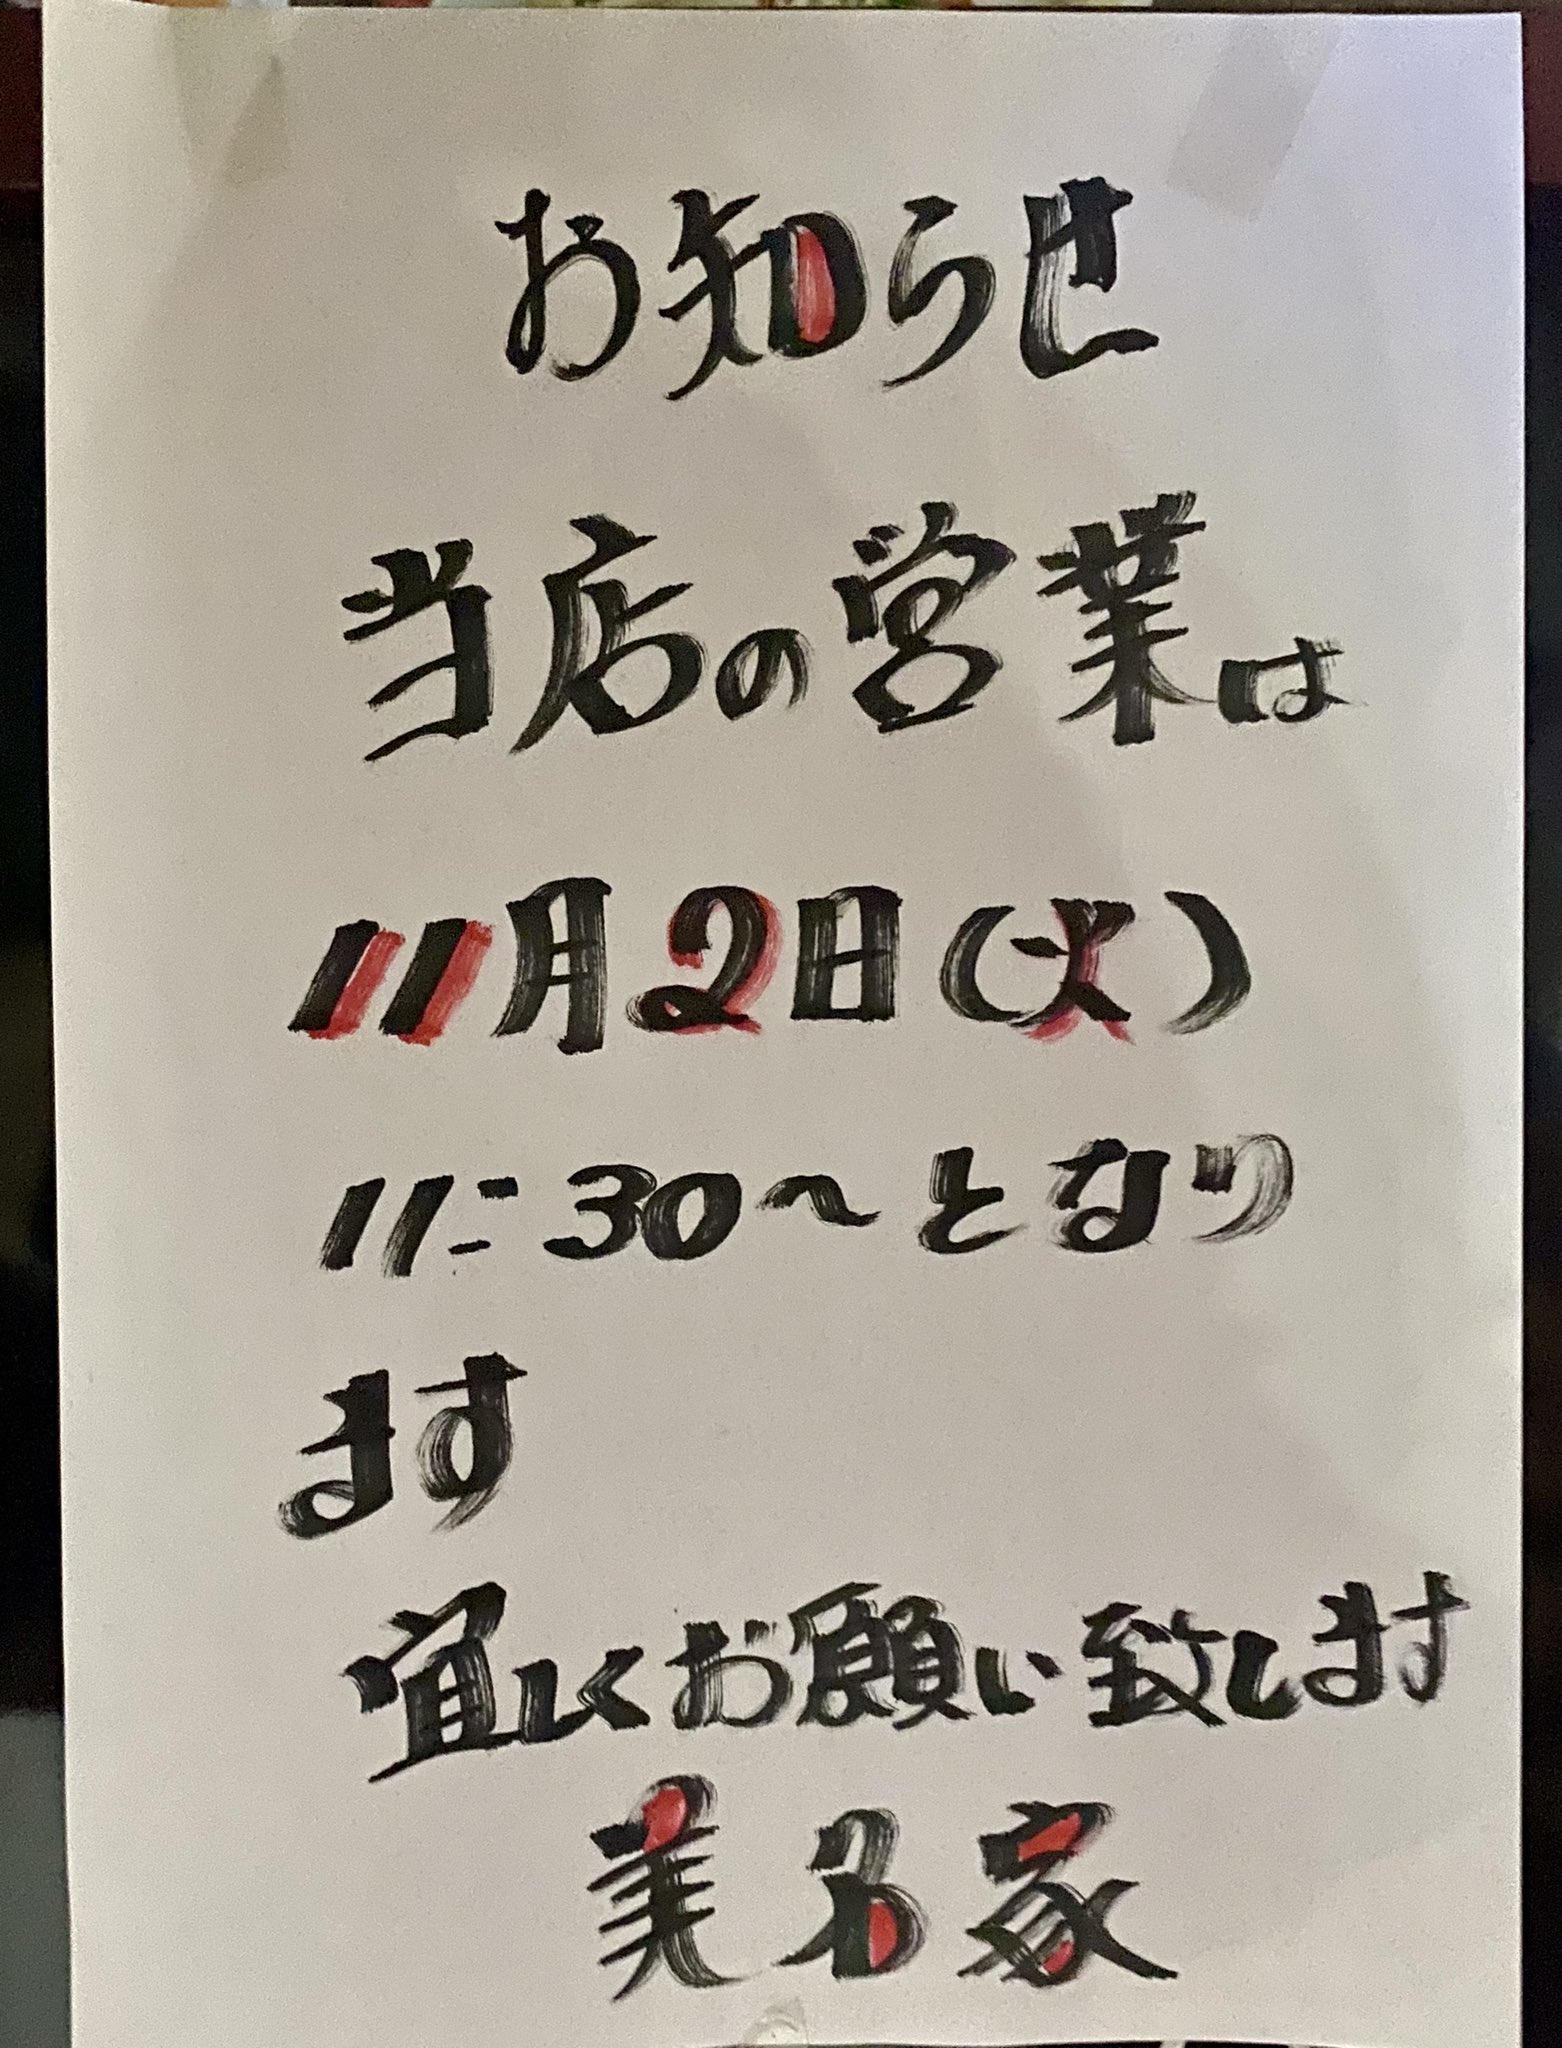 お知らせ
当店の営業は
11月2日(火)
11:30〜となり
ます
宜しくお願い致します
美名家